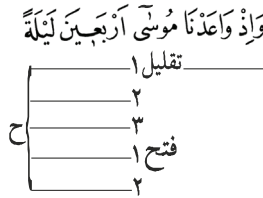 وَاِذْ وَاعَدْنَا مُوسٰٓى اَرْبَعٖينَ لَيْلَةً
تقليل ١
٢
ح ٣
فتح ١
٢